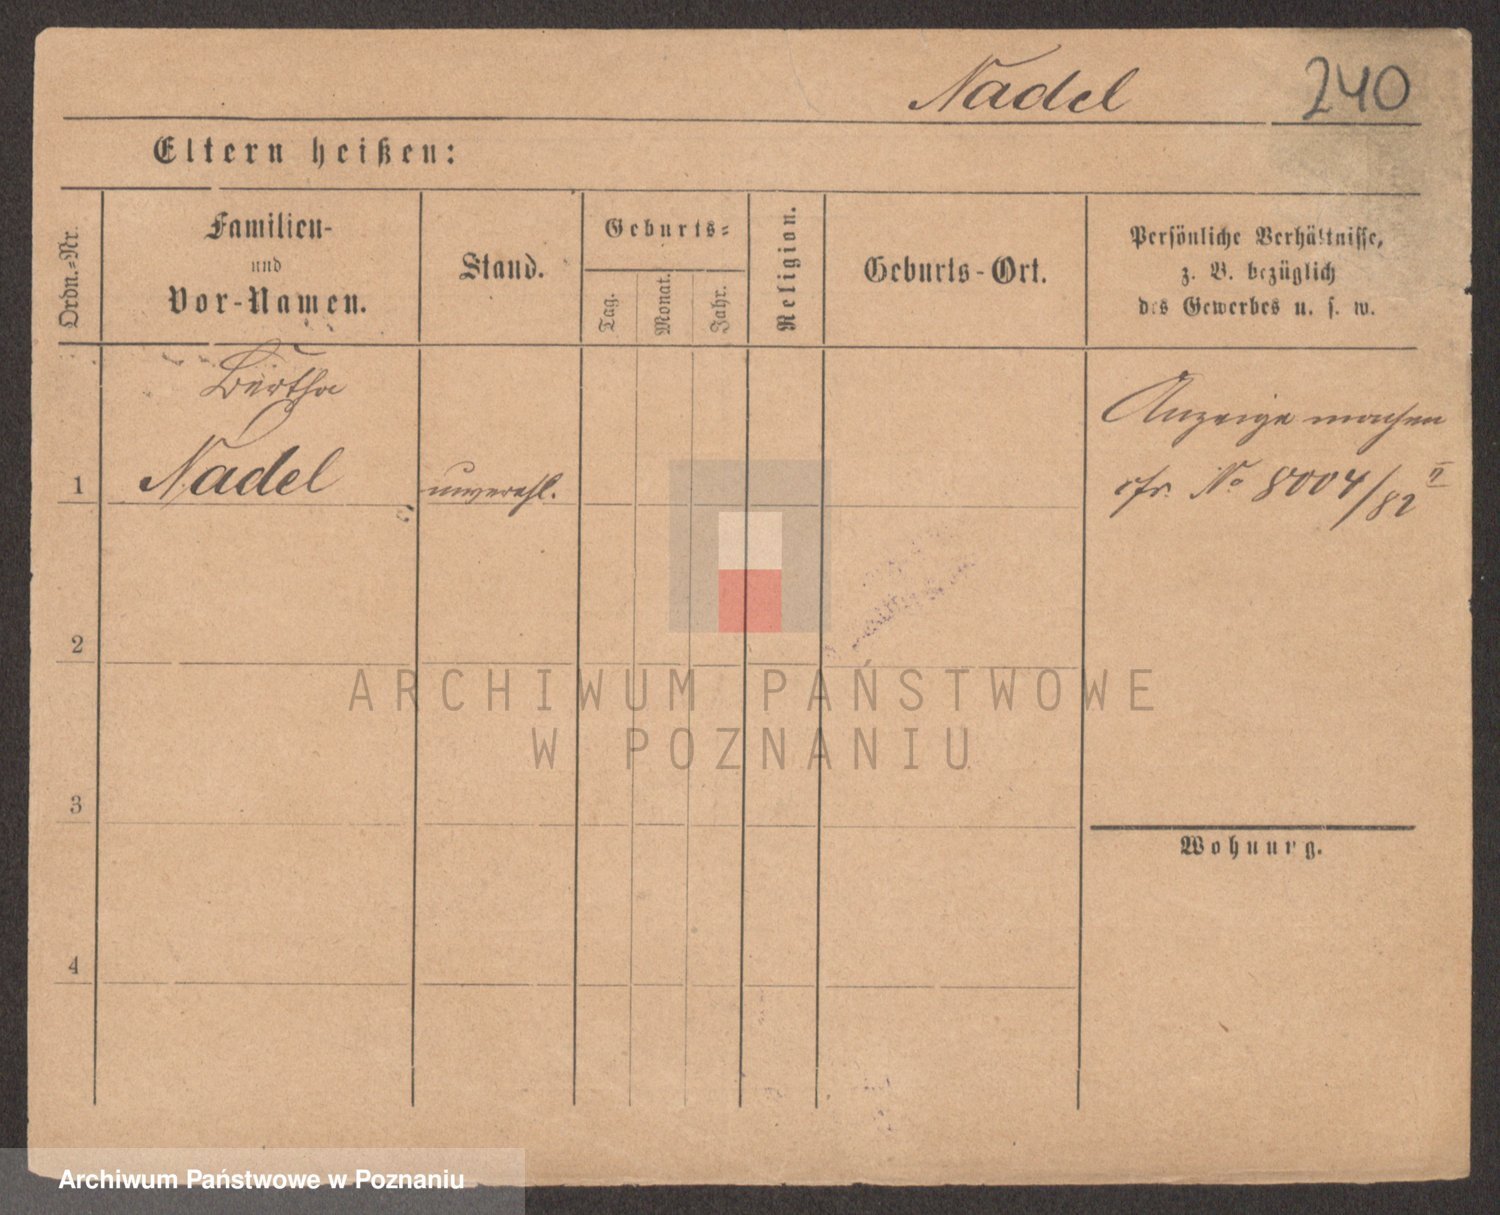 Nadel 240
Eltern heißen:
Ordn.-Nr.
Familien-
und
Vor-Namen.
Stand.
Geburts-
Tag.
Monat.
Jahr.
Religion.
Geburts-Ort.
Persönliche Verhältnisse,
z. B. bezüglich
des Gewerbes u. s. w.
Bertha
1 Nadel unverehl.
Anzeige machen
cfr. No 8004/82 II
2
ARCHIWUM PAŃSTWOWE
W POZNANIU
3
Wohnung.
4
Archiwum Państwowe w Poznaniu